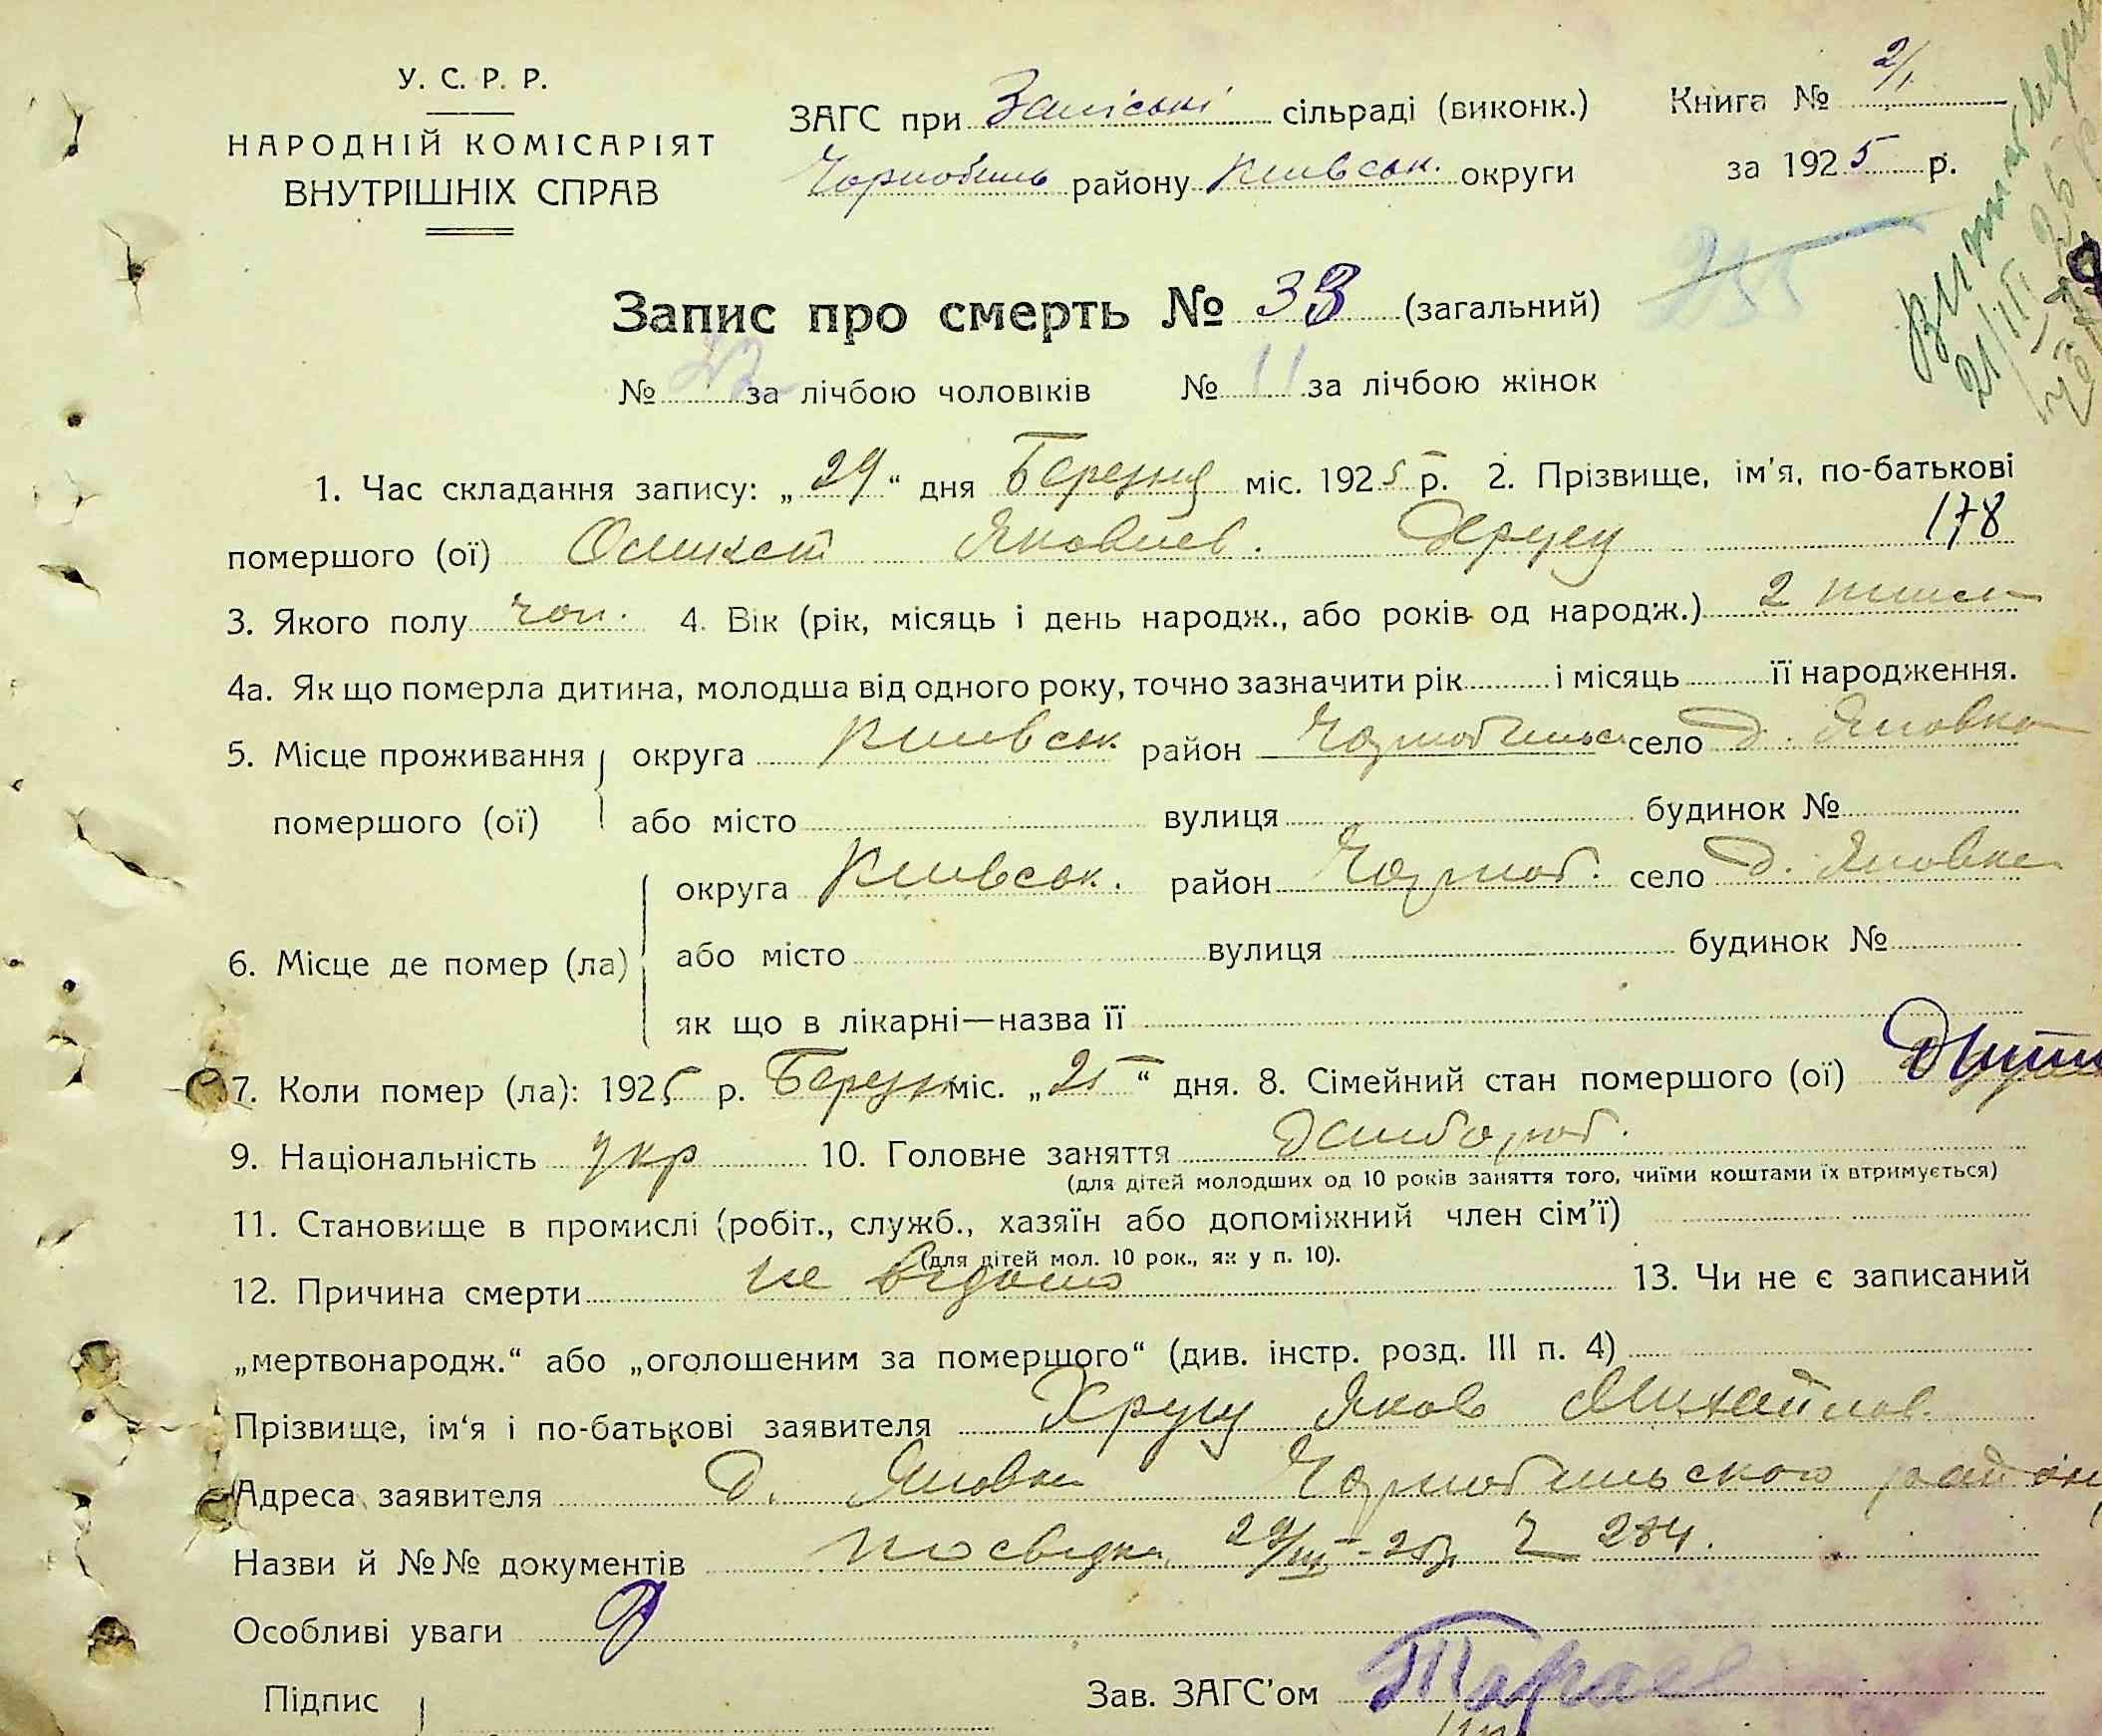 У. С. Р. Р.
НАРОДНІЙ КОМІСАРІЯТ
ВНУТРІШНІХ СПРАВ
ЗАГС при Заліській сільраді (виконк.)
Чорнобиль району Київськ. округи
Книга № 2/1
за 1925 р.
255
Запис про смерть № 33 (загальний)
№ 22 за лічбою чоловіків № 11 за лічбою жінок
1. Час складання запису: „29“ дня Березня міс. 1925 р. 2. Прізвище, ім'я, по-батькові
помершого (ої) Яковлев. 178
3. Якого полу чол. 4. Вік (рік, місяць і день народж., або років од народж.) 2
4а. Як що померла дитина, молодша від одного року, точно зазначити рік і місяць її народження.
5. Місце проживання округа Київськ район Чорнобильс село д. Яновка
помершого (ої) або місто вулиця будинок №
округа Київськ. район Чорноб. село д. Яновка
6. Місце де помер (ла) або місто вулиця будинок №
як що в лікарні—назва її
7. Коли помер (ла): 1925 р. Березн міс. „25“ дня. 8. Сімейний стан помершого (ої)
9. Національність укр 10. Головне заняття
(для дітей молодших од 10 років заняття того, чиїми коштами їх втримується)
11. Становище в промислі (робіт., служб., хазяїн або допоміжний член сім'ї)
(для дітей мол. 10 рок., як у п. 10).
12. Причина смерти не відомо 13. Чи не є записаний
„мертвонародж.“ або „оголошеним за помершого“ (див. інстр. розд. III п. 4)
Прізвище, ім'я і по-батькові заявителя Яков Михайлов.
Адреса заявителя д. Яновка Чорнобильского району
Назви й №№ документів посвідка 29/III-25р Ч 284.
Особливі уваги
Підпис Зав. ЗАГС'ом